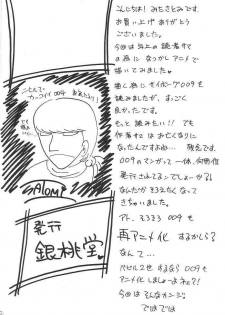 こんにちは!みたきとみです。
お買い上げありがとう
ございます。
今回は年上の読者サマ
の為になつかしアニメで
描いてみました。
描く為にサイボーグ009を
読みましたが、すっごく
良かったです。
もっと読みたい!!でも
作者サマはお亡くなりに
なったんですよね…敬名です。
009のマンガって一体、何冊位
発行されてるンでしょーか?
なんだかそろえたくなって
きちゃいました。
アト、そろそろ009も
再アニメ化するかしら?
なんて…
バビル2世するなら009も
アニメ化しましょーよネェ?!
今回はそんなカンジ。
ではでは
ことんで
カッコイイ009
お気に入り
ATOMI
発行
銀桃堂